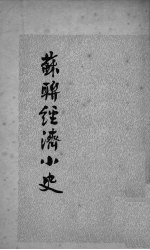 蘇聯經濟小史